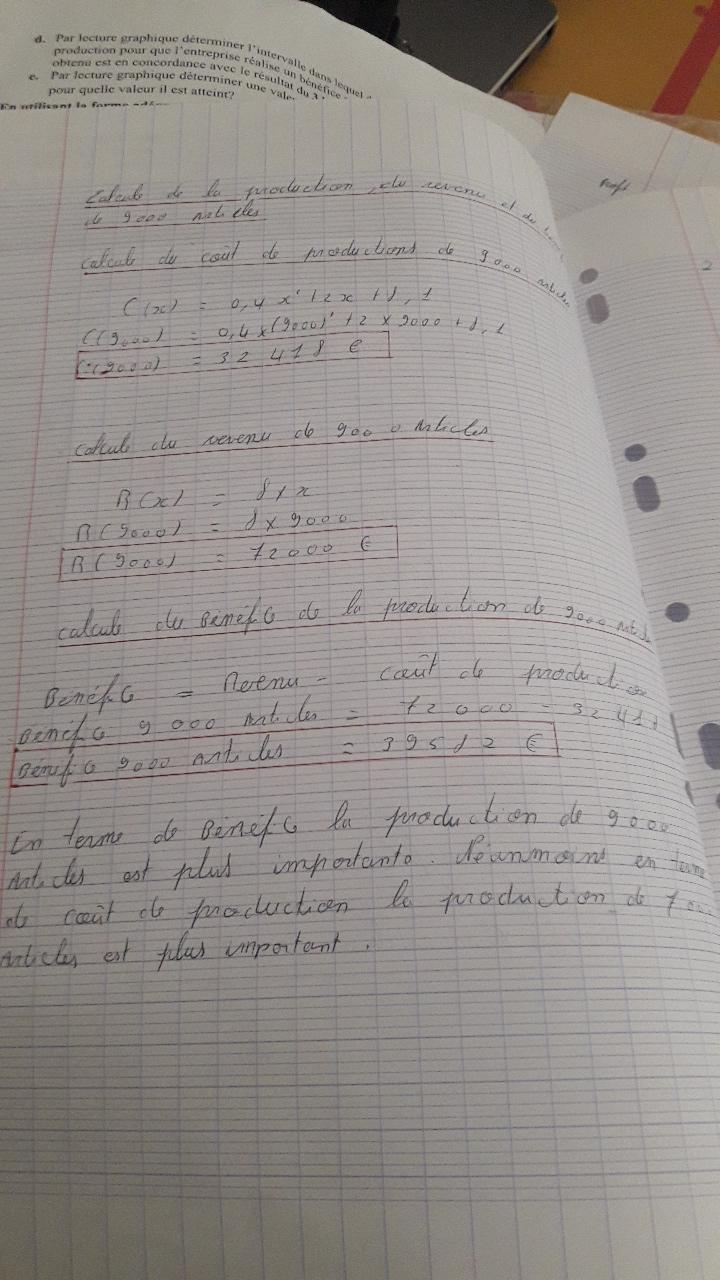 d. Par lecture graphique déterminer l'intervalle dans lequel
production pour que l'entreprise réalise un bénéfice
obtenu est en concordance avec le résultat du 3
e. Par lecture graphique déterminer une
pour quelle valeur il est atteint?
En utilisant la forme
calcule de la production, du revenu et du
de 9000 articles
calcule du coût de productions de 9000 articles
C(x) = 0,4 x² + 2x + 8,1
C(9000) = 0,4 x (9000)² + 2 x 9000 + 8,1
C(9000) = 32 418 €
calcule du revenu de 9000 Articles
R(x) = 8 x x
R(9000) = 8 x 9000
R(9000) = 72000 €
calcule du Bénéfice de la production de 9000
Bénéfice = Revenu - coût de production
Bénéfice 9000 Articles = 72000 - 32418
Bénéfice 9000 Articles = 39582 €
En terme de Bénéfice la production de 9000
Articles est plus importante. Néanmoins en terme
de coût de production la production de
Articles est plus important.
2